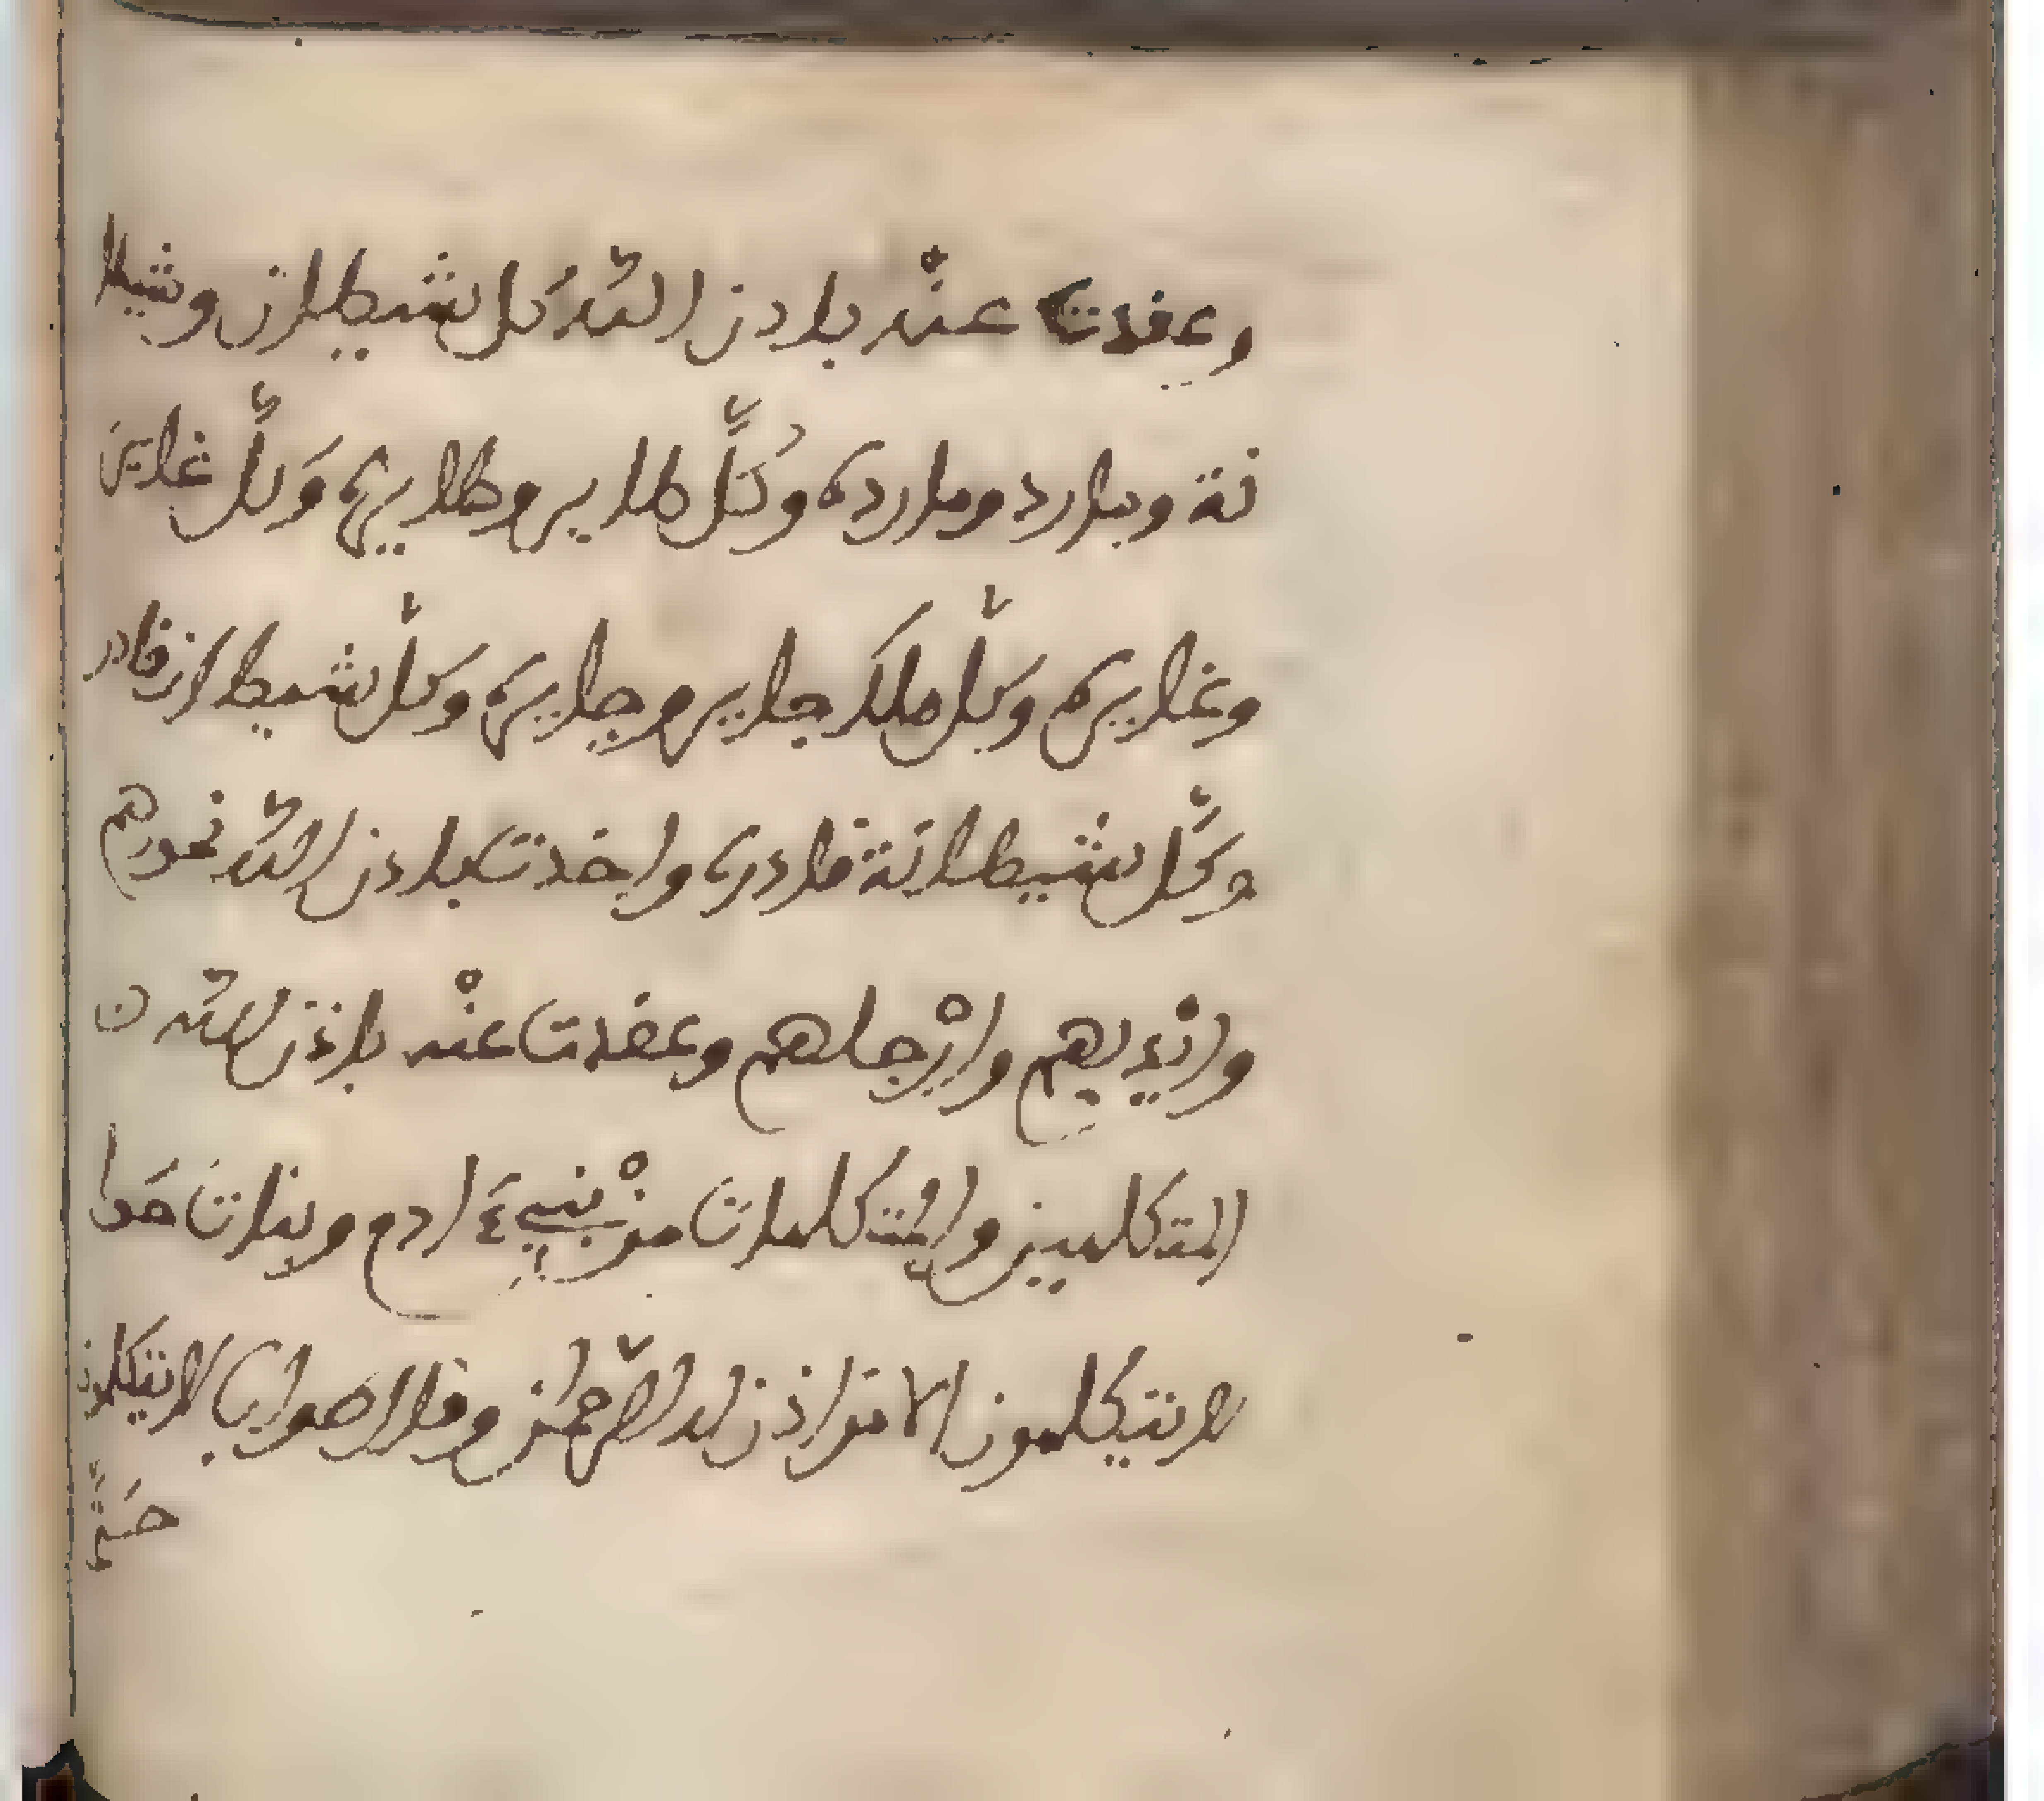 وعقدت عنه باذن اللّه كل شيطان وشيطا
نة ومارد وماردة وكلّ طاير وطايرة وكلّ غاير
وغايرة وكلّ ملك جاير وجايرة وكلّ شيطان قادر
وكلّ شيطانة قادرة واخذت باذن اللّه نحورهم
وايْديهم وارْجلهم وعقدت عنْه باذن اللّه
المتكلمين والمتكلمات منْ بني ءادم وبنات حوا
لا يتكلمون الا من اذن له الرّحمن وقال صوابا لا يتكلمون
حتّى